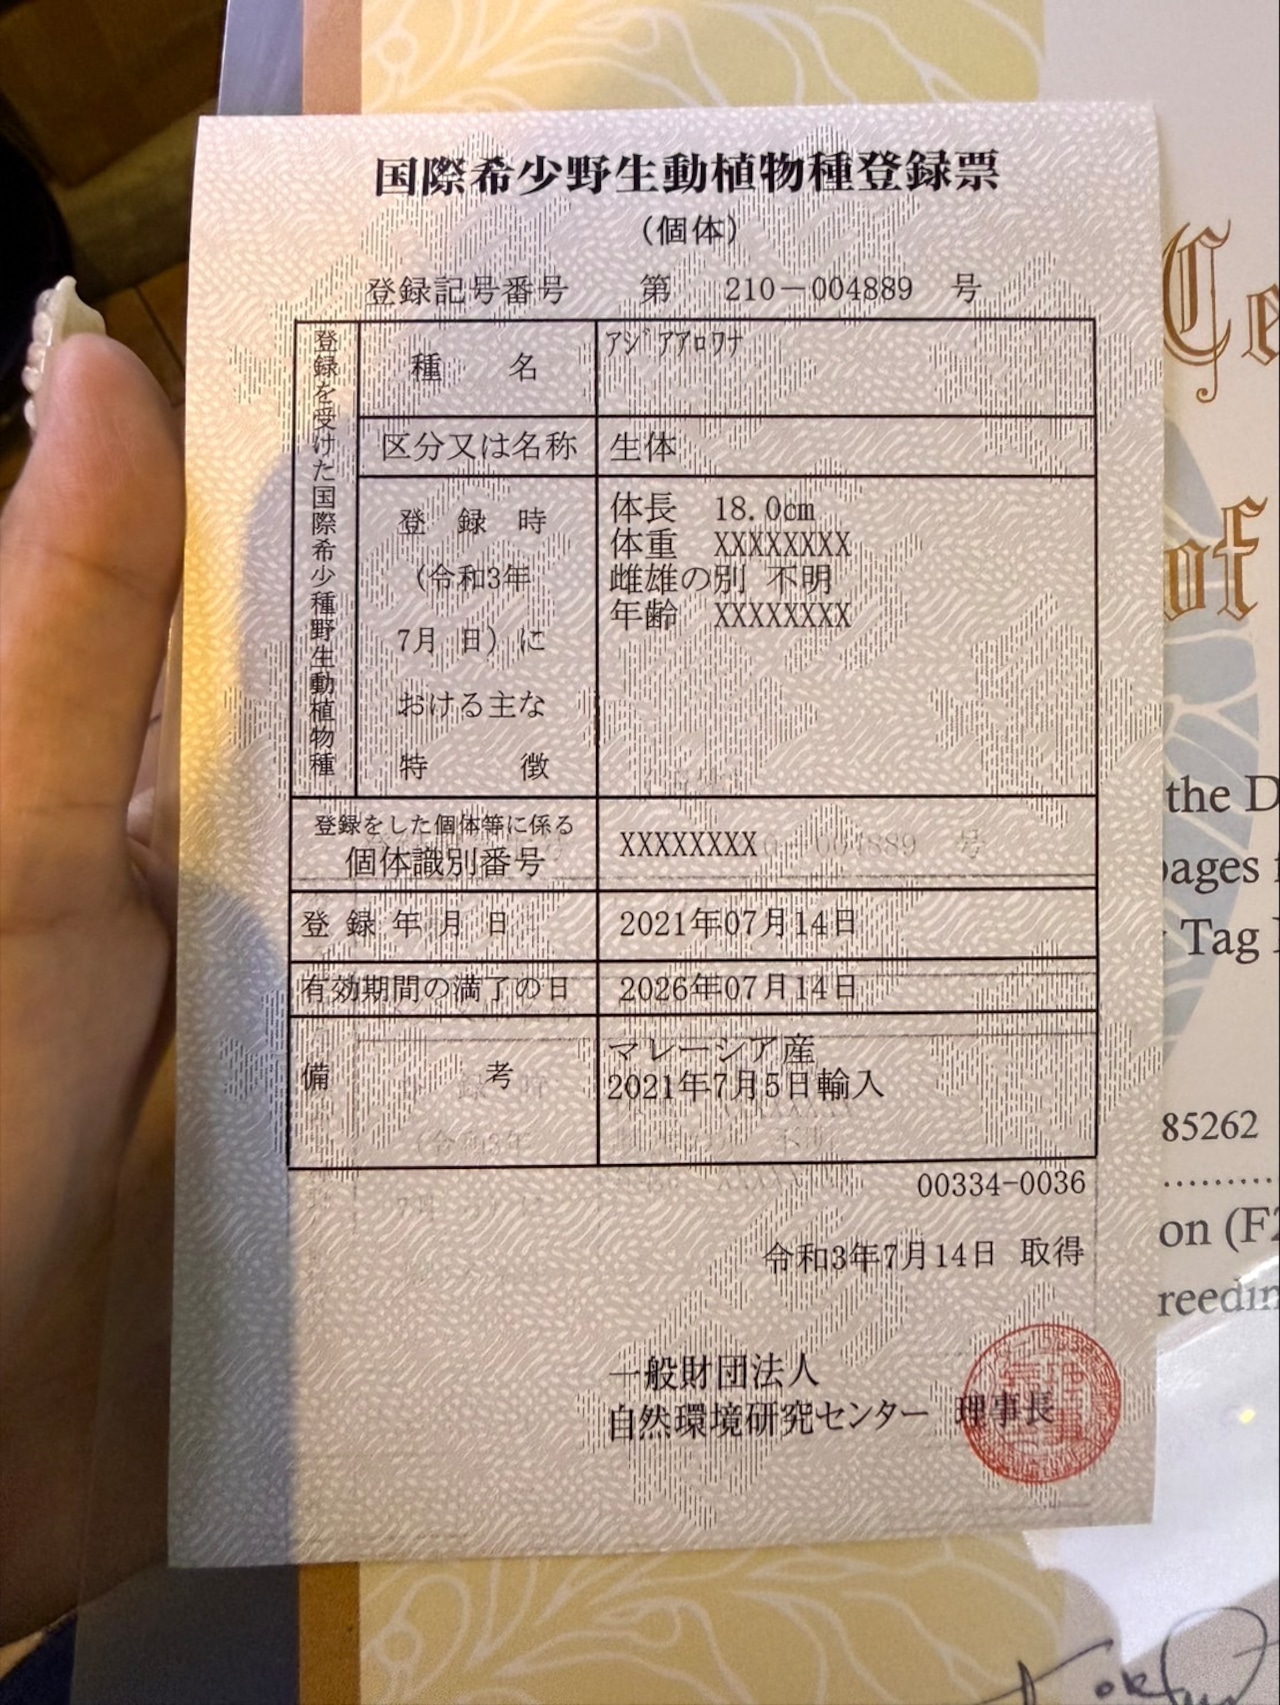 国際希少野生動植物種登録票
(個体)
登録記号番号 第 210-004889 号
登録を受けた国際希少種野生動植物種
種 名 アジアアロワナ
区分又は名称 生体
登 録 時
(令和3年
7月 日)に
おける主な
特 徴
体長 18.0cm
体重 XXXXXXXX
雌雄の別 不明
年齢 XXXXXXXX
登録をした個体等に係る
個体識別番号 XXXXXXXX
登 録 年 月 日 2021年07月14日
有効期間の満了の日 2026年07月14日
備 考
マレーシア産
2021年7月5日輸入
00334-0036
令和3年7月14日 取得
一般財団法人
自然環境研究センター 理事長
Ce
of
the D
pages
Tag
85262
on (F2
reedin